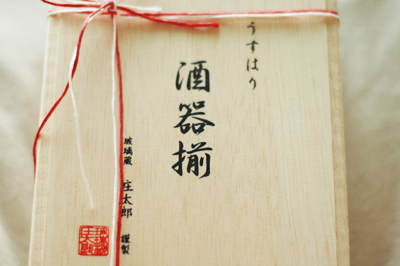 うすはり
酒器揃
玻璃蔵 庄太郎 謹製